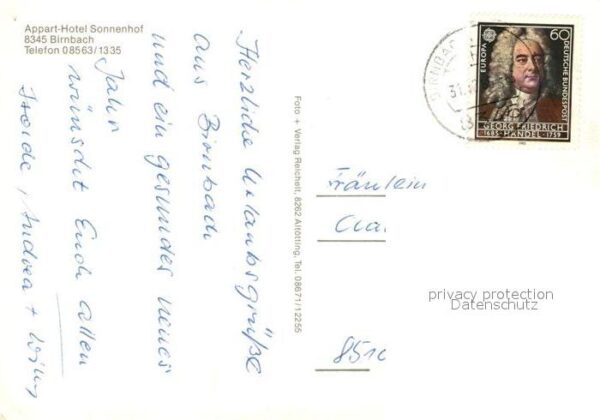 Appart-Hotel Sonnenhof
8345 Birnbach
Telefon 08563/1335
Herzliche Urlaubsgrüße
aus Birnbach
und ein gesundes neues
Jahr
wünscht Euch allen
Heide, Andrea + Willy
Foto + Verlag Reichelt, 8262 Altötting, Tel. 08671/12255
BIRNBACH
31.
EUROPA
60
DEUTSCHE BUNDESPOST
GEORG FRIEDRICH
1685-HÄNDEL-1759
Fräulein
Cla.
privacy protection
Datenschutz
851